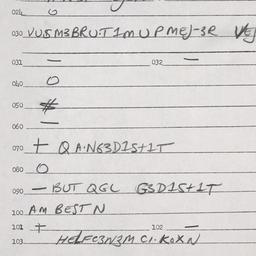 024 O
030 VU5M3BRUT1MUPMEJ-3R VEJ
031 — 032 —
040 O
050 #
060 —
070 + QA·NG3D1S+1T
080 O
090 — BUT QGL G3D1S+1T
100 AM BEST N
101 + 102 —
103 HELFC3N3M C1·KOXN